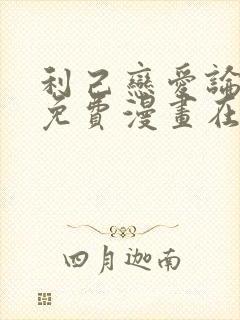 利己戀愛論
免費漫畫在
四月迦南